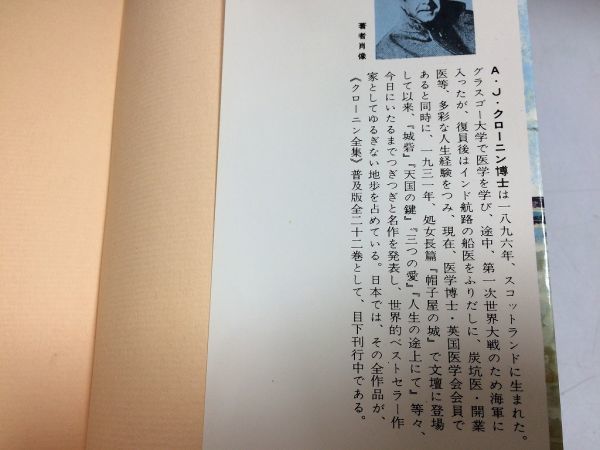 著者肖像
A・J・クローニン博士は一八九六年、スコットランドに生まれた。
グラスゴー大学で医学を学び、途中、第一次世界大戦のため海軍に
入ったが、復員後はインド航路の船医をふりだしに、炭坑医・開業
医等、多彩な人生経験をつみ、現在、医学博士・英国医学会会員で
あると同時に、一九三一年、処女長篇『帽子屋の城』で文壇に登場
して以来、『城砦』『天国の鍵』『三つの愛』『人生の途上にて』等々、
今日にいたるまでつぎつぎと名作を発表し、世界的ベストセラー作
家としてゆるぎない地歩を占めている。日本では、その全作品が、
《クローニン全集》普及版全二十二巻として、目下刊行中である。